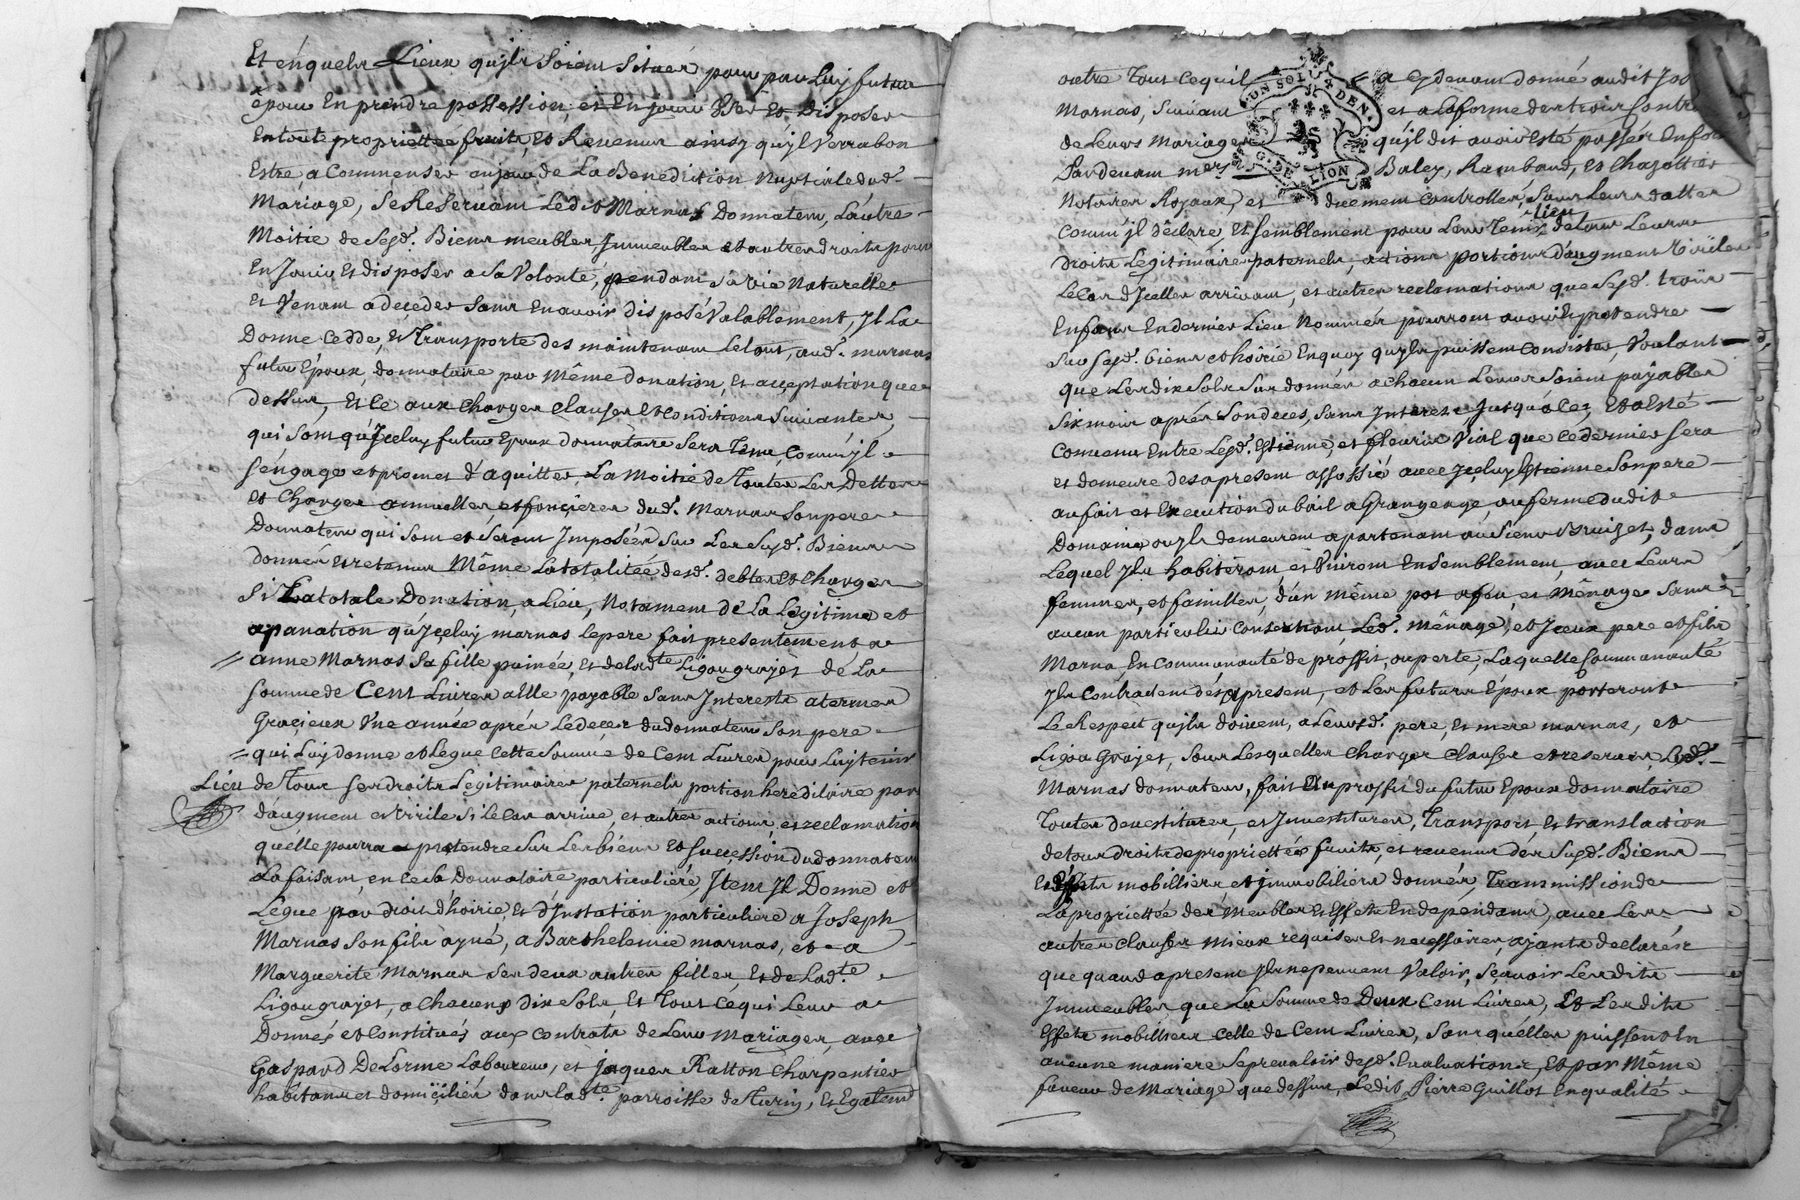 Et enquels Lieux qu'jls Soient Situés pour par Luy futur
époux En prendre possession, et En jouir User et Disposer
En toute proprietteé fruits, Et Revenus ainsy qu'jl Verra bon
Estre, a Commenser au jour de La Benediction Nuptiale dud.
Mariage, Se Reservant Ledit Marnas Donnateur, L'autre
Moitie de Sesd. Biens meubles Jmmeubles et autres droits pour
En Jouir et disposer a Sa Volonté, pendant Sa vie Naturelle
Et Venant a deceder Sans En avoir disposé Valablement, Jl La
Donne Cedde, Et Transporte des maintenant Le tout, aud. marnas
futur Epoux, donnataire par Même donation, Et acceptation que
dessus, Et Ce aux Charges Clauses Et Conditions Suivantes,
qui Sont qu'Jceluy futur Epoux Donnataire Sera Tenu, Comm'jl
S'engage et promet d'aquitter La Moitié de Toutes Les Dettes
et Charges annuelles, et foncieres dud. Marnas Son pere
Donnateur qui Sont et Seront Jmposéés Sur Les Susd. Biens
donnés Et retenus Même La totalitéé desd. debtes et Charges
Si La totale Donation, a Lieu, Notament de La Legitime et
apanation qu'Jceluy marnas Le pere fait presentement a
= anne Marnas Sa fille puinée, Et de Ladte. Ligougrajet de La
Somme de Cent Livres a Elle payable Sans Interests a termes
Gracieux Une année aprés Le decez du donnateur Son pere
= qui Luy donne et Legue Cette Somme de Cent Livres pour Luy tenir
Lieu de Tous Ses droits Legitimaires paternels portion hereditaire part
d'augment et Virile Si Le Cas arrive, et autres actions, et reclamations
qu'elle pourra pretendre Sur Les biens Et Succession du donnateur
La faisant, en Ce Sa Donnataire particulieré, Jtem Jl Donne et
Legue par droit d'hoirie, Et d'Jnstation particuliere a Joseph
Marnas Son fils ayné, a Barthelemie marnas, et a
Marguerite Marnas Ses deux autres filles, Et de Ladte.
Ligougrajet, a Chacuns dix Sols, Et Tout Ce qui Leur a
Donnés et Constitués aux Contrats de Leurs Mariages, avec
Gaspard DeLorme Laboureur, et jaques Ratton Charpentier
habitants et domicilies dans ladte. parroisse de Turin, Et Egalemt
outre Tout Ce qu'il a Cydevant donné audit Jos
Marnas, Suivant et a La forme des trois Contra
de Leurs Mariages qu'jl dit avoir Esté passés En
Pardevant mes. Baley, Rambaud, Et Chazottier
Notaires Royaux, et duement Controllés, Sous Leurs dattes
Comm'jl déclare, Et Semblement pour Leur Tenir Lieu de Tous Leurs
droits Legitimaires paternels, actions portions d'augment Viriles
Le Cas d'Jcelles arrivant, et autres reclamations que Sesd. trois
Enfans En dernier Lieu Nommés pourront avoir Et pretendre
Sur Sesd. biens et hoirie En quoy qu'jls puissent Consister, Voulant
que Les dix Sols Sus donnés a Chacun Leurs Soient payables
Six mois aprés Son deces, Sans Jnterest Jusqu'alors, Et a Esté
Convenu Entre Lesd. Estienne, et fleurie Vial que Ce dernier Sera
et demeure des a present assossié avec Jceluy Estienne Son pere
au fait et Execution du bail a Grangeage, ou ferme dudit
Domaine ou jls demeurent apartenant au Sieur Bruiset, dans
Lequel Jls habiterons et Vivrons Ensemblement, avec Leurs
femmes, et familles, d'un même pot a feu, et Ménage Sans
aucun particulier Concernant Led. Ménage, et Jceux pere et fils
Marna En Communauté de proffit, ou perte, Laquelle Communauté
Jls Contractent dés a present, et Les futurs Epoux porteront
Le Respect qu'jls doivent, a Leursd. pere, Et mere marnas, et
Ligou Grajet, Sous Lesquelles Charges Clauses et reserves, Led.
Marnas donnateur, fait Au proffit du futur Epoux donnataire
Toutes devestitures, et Jnvestitures, Transport, Et translation
de tous droits de proprietteé fruits, et revenus des Susd. Biens
Et Effets mobilliers et jmmobiliers donnés, Transmission de
La proprietteé des Meubles Et Effets En dependans, avec Les
autres Clauses mieux requises Et necessaires, ayants declarés
que quand a present Jls ne peuvent Valoir, Sçavoir Lesdits
Jmmeubles que La Somme de Deux Cent Livres, Et Lesdits
Effets mobilliers Celle de Cent Livres, Sans qu'elles puissent En
aucune maniere Se prevaloir desd. Evaluations, Et par Même
faveur de Mariage que dessus, Ledit Pierre Guillot En qualité
UN SOL 4 DEN.
G. DE LION